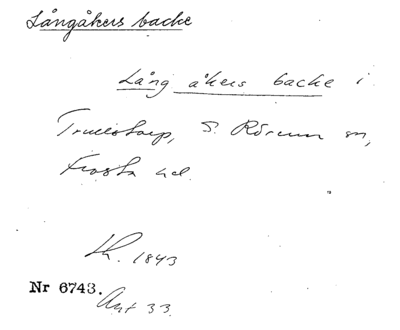 Långåkers backe
Lång åkers backe i
Trulstorp, S. Rörum sn,
Frosta hd.
Lh. 1843
Nr 6743.
Akt 33.